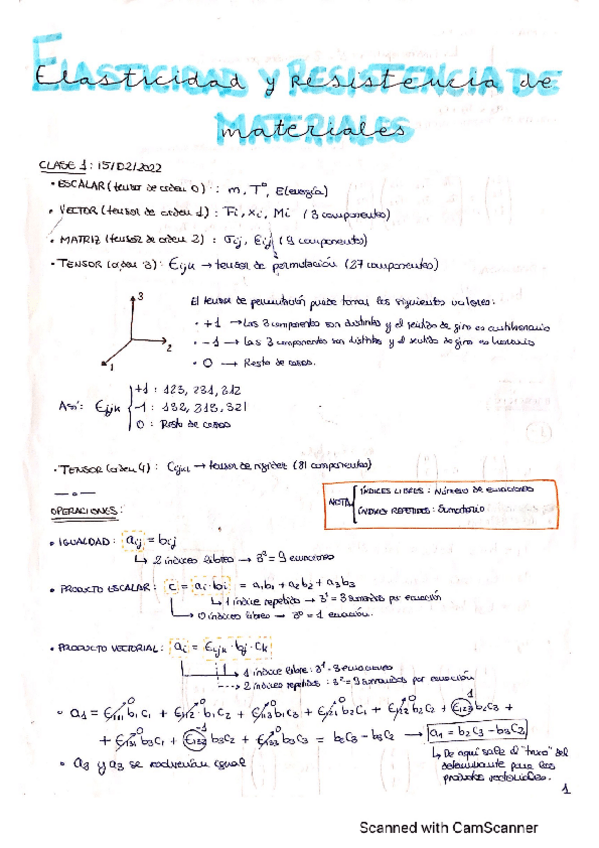 Elasticidad y Resistencia de
materiales
CLASE 1: 15/02/2022
• ESCALAR (tensor de orden 0) : m, Tº, E(energía)
• VECTOR (tensor de orden 1) : Fi, xi, Mi (3 componentes)
• MATRIZ (tensor de orden 2) : σij, Eij (9 componentes)
• TENSOR (orden 3): Eijk → tensor de permutación (27 componentes)
3
2
1
El tensor de permutación puede tomar los siguientes valores:
• +1 → Los 3 componentes son distintos y el sentido de giro es antihorario
• -1 → Los 3 componentes son distintos y el sentido de giro es horario
• 0 → Resto de casos.
Así: Eijk
+1 : 123, 231, 312
-1 : 132, 213, 321
0 : Resto de casos
• TENSOR (orden 4) : Cijkl → tensor de rigidez (81 componentes)
OPERACIONES:
NOTA
ÍNDICES LIBRES : Número de ecuaciones
ÍNDICES REPETIDOS: Sumatorio
• IGUALDAD : aij = bij
↳ 2 índices libres → 3² = 9 ecuaciones
• PRODUCTO ESCALAR : c = ai·bi = a1b1 + a2b2 + a3b3
↳ 1 índice repetido → 3¹ = 3 sumandos por ecuación
↳ 0 índices libres → 3º = 1 ecuación.
• PRODUCTO VECTORIAL : ai = Eijk · bj · ck
→ 1 índice libre : 3¹ = 3 ecuaciones
→ 2 índices repetidos : 3² = 9 sumandos por ecuación
• a1 = E111 b1 c1 + E112 · b1 c2 + E113 b1 c3 + E121 b2 c1 + E122 b2 c2 + E123 b2 c3 +
+ E131 b3 c1 + E132 b3 c2 + E133 b3 c3 = b2c3 - b3c2 → a1 = b2c3 - b3c2
↳ De aquí sale el "truco" del
determinante para los
productos vectoriales.
• a2 y a3 se resolverían igual
1
Scanned with CamScanner